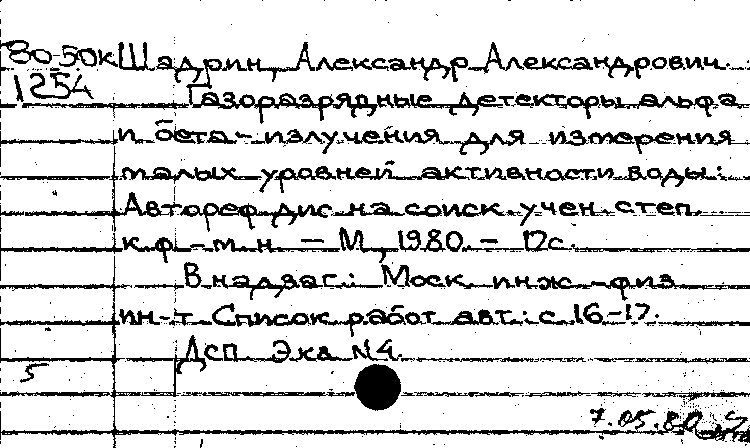 80-50к Шадрин, Александр Александрович.
1254 Газоразрядные детекторы альфа
и бета-излучения для измерения
малых уровней активности воды:
Автореф. дис. на соиск. учен. степ.
к.ф.-м.н. - М., 1980. - 17с.
В надзаг.: Моск. инж.-физ.
ин-т. Список работ авт.: с. 16-17.
Дсп. Экз. N4.
5
7.05.80